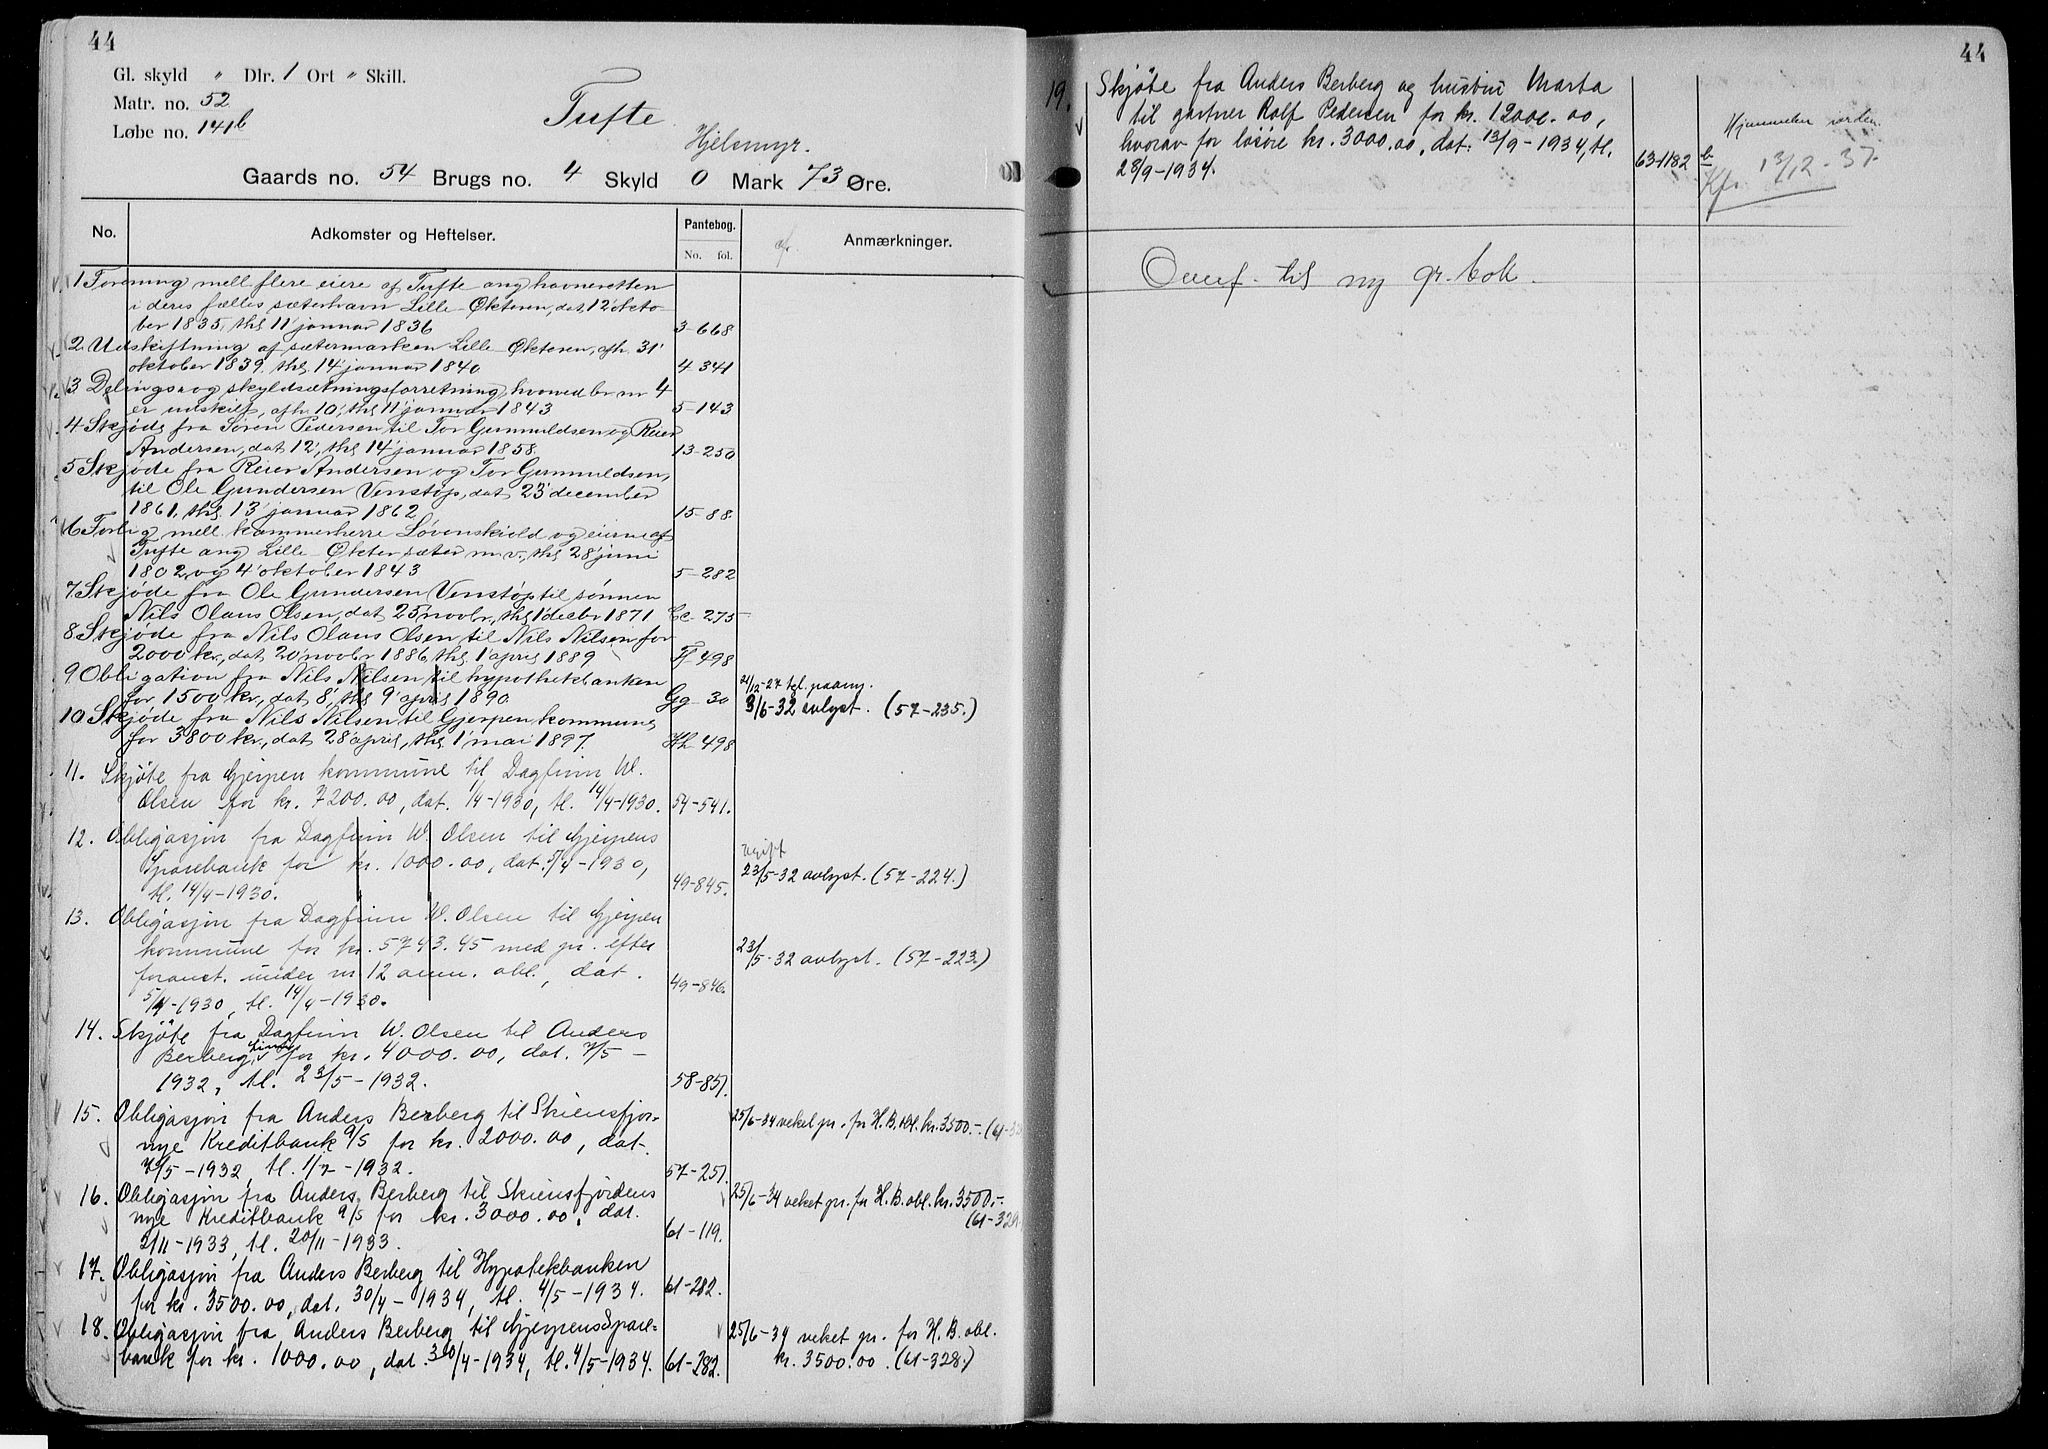 44
Gl. skyld " Dlr. 1 Ort " Skill.
Matr. no. 52
Løbe no. 141b
Tufte
Hjelsmyr.
Gaards no. 54 Brugs no. 4 Skyld 0 Mark 73 Øre.
No. Adkomster og Heftelser. Pantebog. No. fol. Anmærkninger.
1 Forening mell. flere eiere af Tufte ang havneretten
i deres fælles sæterhavn Lille Økteren, dat. 12' okto-
ber 1835, thl. 11' januar 1836 3-668
2. Udskiftning af sætermarken Lille Økteren, afh. 31'
oktober 1839, thl. 14' januar 1840 4 341
3 Delings- og skyldsætningsforretning, hvorved br. nr 4
er udskilt, afh. 10', thl. 11' januar 1843 5-143
4 Skjøde fra Søren Pedersen til Tor Gunnuldsen og Reier
Andersen, dat 12', thl 14' januar 1858. 13-250
5 Skjøde fra Reier Andersen og Tor Gunnuldsen,
til Ole Gundersen Venstøp, dat 23' december
1861, thl. 13' januar 1862 15-88.
6 Forlig mell. kammerherre Løvenskiold og eierne af
Tufte ang Lille Økter sæter m. v., thl. 28' juni
1802 og 4' oktober 1843 5-282
7. Skjøde fra Ole Gundersen Venstøp til sønnen
Nils Olaus Olsen, dat 25' novbr, thl 1' decbr 1871 Cc-275
8. Skjøde fra Nils Olaus Olsen til Nils Nilsen for
2000 kr., dat 20' novbr 1886, thl. 1' april 1889 Ff 498
9. Obligation fra Nils Nilsen til hypothekbanken
for 1500 kr, dat 8', thl 9' april 1890. Gg 30
21/12-27 tgl. paany.
3/6-32 avlyst. (57-235.)
10 Skjøde fra Nils Nilsen til Gjerpen kommune
for 3800 kr., dat 28' april, thl 1' mai 1897. Hh 498
11. Skjøte fra Gjerpen kommune til Dagfinn W.
Olsen for kr. 7200.00, dat. 1/4-1930, tl. 14/4-1930. 54-541.
12. Obligasjon fra Dagfinn W. Olsen til Gjerpens
Sparebank for kr. 1000.00, dat. 5/4-1930,
tl. 14/4-1930. 49-845.
23/5-32 avlyst. (57-224.)
13. Obligasjon fra Dagfinn W. Olsen til Gjerpen
kommune for kr. 5743.45 med pr. efter
foranst. under nr 12 anm. obl., dat.
5/4-1930, tl. 14/4-1930. 49-846.
23/5-32 avlyst. (57-223.)
14. Skjøte fra Dagfinn W. Olsen til Anders
Berberg for kr. 4000.00, dat. 7/5-
1932, tl. 23/5-1932. 58-851.
15. Obligasjon fra Anders Berberg til Skiensfjor-
nye Kreditbank A/S for kr. 2000.00, dat.
/5-1932, tl. 1/7-1932. 57-251.
25/6-34 veket pr. for H.B. obl. kr. 3500.-
16. Obligasjon fra Anders Berberg til Skiensfjordens
nye Kreditbank A/S for kr. 3000.00, dat.
2/11-1933, tl. 20/11-1933. 61-119.
25/6-34 veket pr. for H.B. obl. kr. 3500.-
(61-329.
17. Obligasjon fra Anders Berberg til Hypotekbanken
for kr. 3500.00, dat. 30/4-1934, tl. 4/5-1934. 61-282.
18. Obligasjon fra Anders Berberg til Gjerpens Spare-
bank for kr. 1000.00, dat. 30/4-1934, tl. 4/5-1934. 61-282.
25/6-34 veket pr. for H.B. obl.
kr. 3500.00. (61-328.)
44
19. Skjøte fra Anders Berberg og hustru Marta
til gartner Rolf Pedersen for kr. 12000.00,
hvorav for løsøre kr. 3000.00, dat. 13/9-1934, tl.
28/9-1934. 63-1182
13/12-37.
Overf. til ny gr.bok.